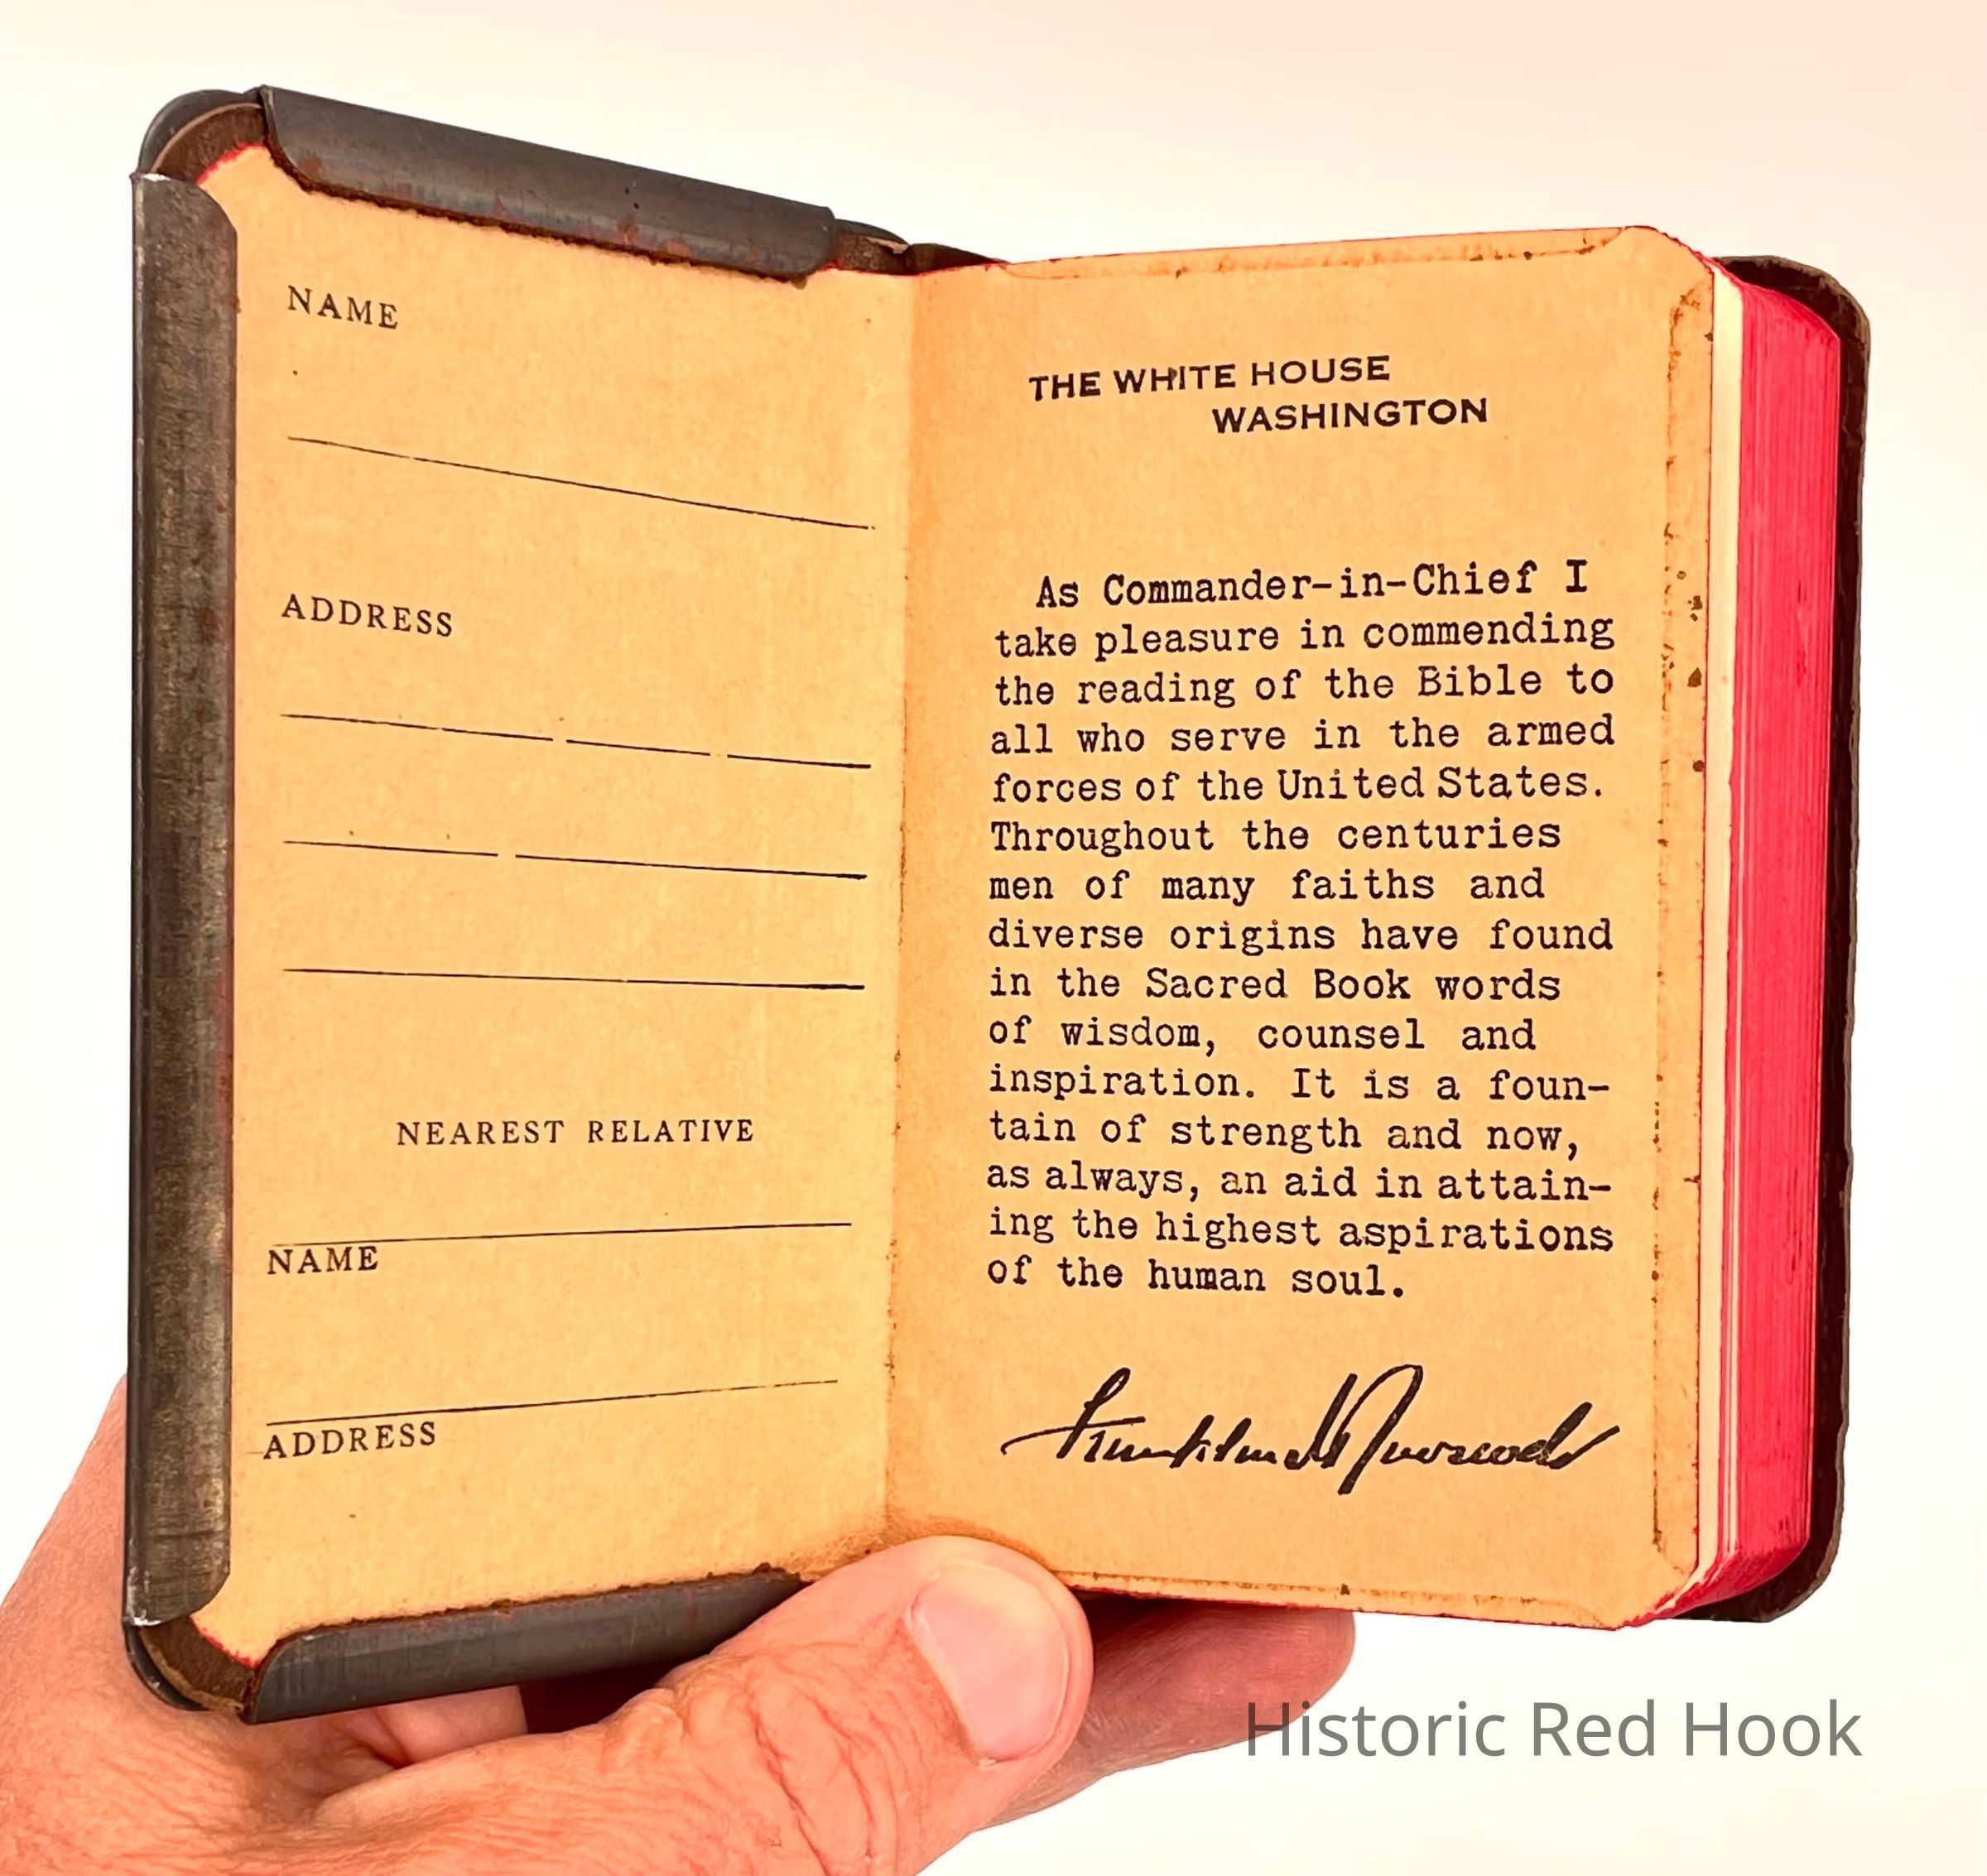 NAME
ADDRESS
NEAREST RELATIVE
NAME
ADDRESS
THE WHITE HOUSE
WASHINGTON
As Commander-in-Chief I
take pleasure in commending
the reading of the Bible to
all who serve in the armed
forces of the United States.
Throughout the centuries
men of many faiths and
diverse origins have found
in the Sacred Book words
of wisdom, counsel and
inspiration. It is a foun-
tain of strength and now,
as always, an aid in attain-
ing the highest aspirations
of the human soul.
Franklin D Roosevelt
Historic Red Hook